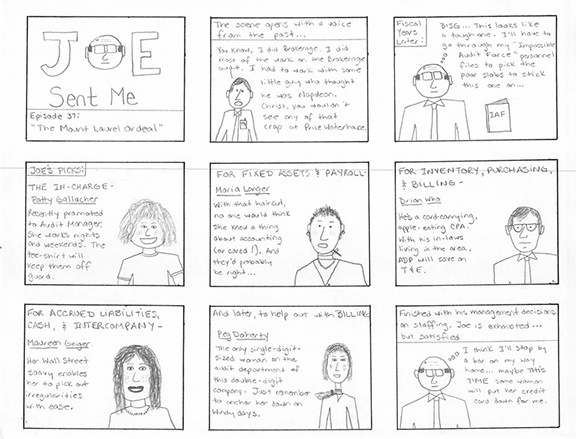 JOE
Sent Me
Episode 37:
"The Mount Laurel Ordeal"
The scene opens with a voice
from the past...
You know, I did Brokerage. I did
most of the work on the Brokerage
audit. I had to work with some
little guy who thought
he was Napoleon.
Christ, you wouldn't
see any of that
crap at Price Waterhouse.
Fiscal
Years
Later:
BISG... This looks like
a tough one. I'll have to
go through my "Impossible
Audit Force" personnel
files to pick the
poor slobs to stick
this one on...
IAF
JOE'S PICKS:
THE IN-CHARGE-
Patty Gallacher
Recently promoted
to Audit Manager,
she works nights
and weekends. The
tee-shirt will
keep them off
guard.
FOR FIXED ASSETS & PAYROLL-
Maria Langer
With that haircut,
no one would think
she knew a thing
about accounting
(or cared!). And
they'd probably
be right...
FOR INVENTORY, PURCHASING,
& BILLING -
Brian Wha
He's a card-carrying,
apple-eating CPA.
With his in-laws
living in the area,
ADP will save on
T&E.
FOR ACCRUED LIABILITIES,
CASH, & INTERCOMPANY-
Maureen Geiger
Her Wall Street
savvy enables
her to pick out
irregularities
with ease.
And later, to help out with BILLING
Peg Doherty
The only single-digit-
sized woman on the
audit department of
this double-digit
company. Just remember
to anchor her down on
windy days.
Finished with his management decisions
on staffing, Joe is exhausted...
but satisfied
I think I'll stop by
a bar on my way
home... maybe THIS
TIME some woman
will put her credit
card down for me.